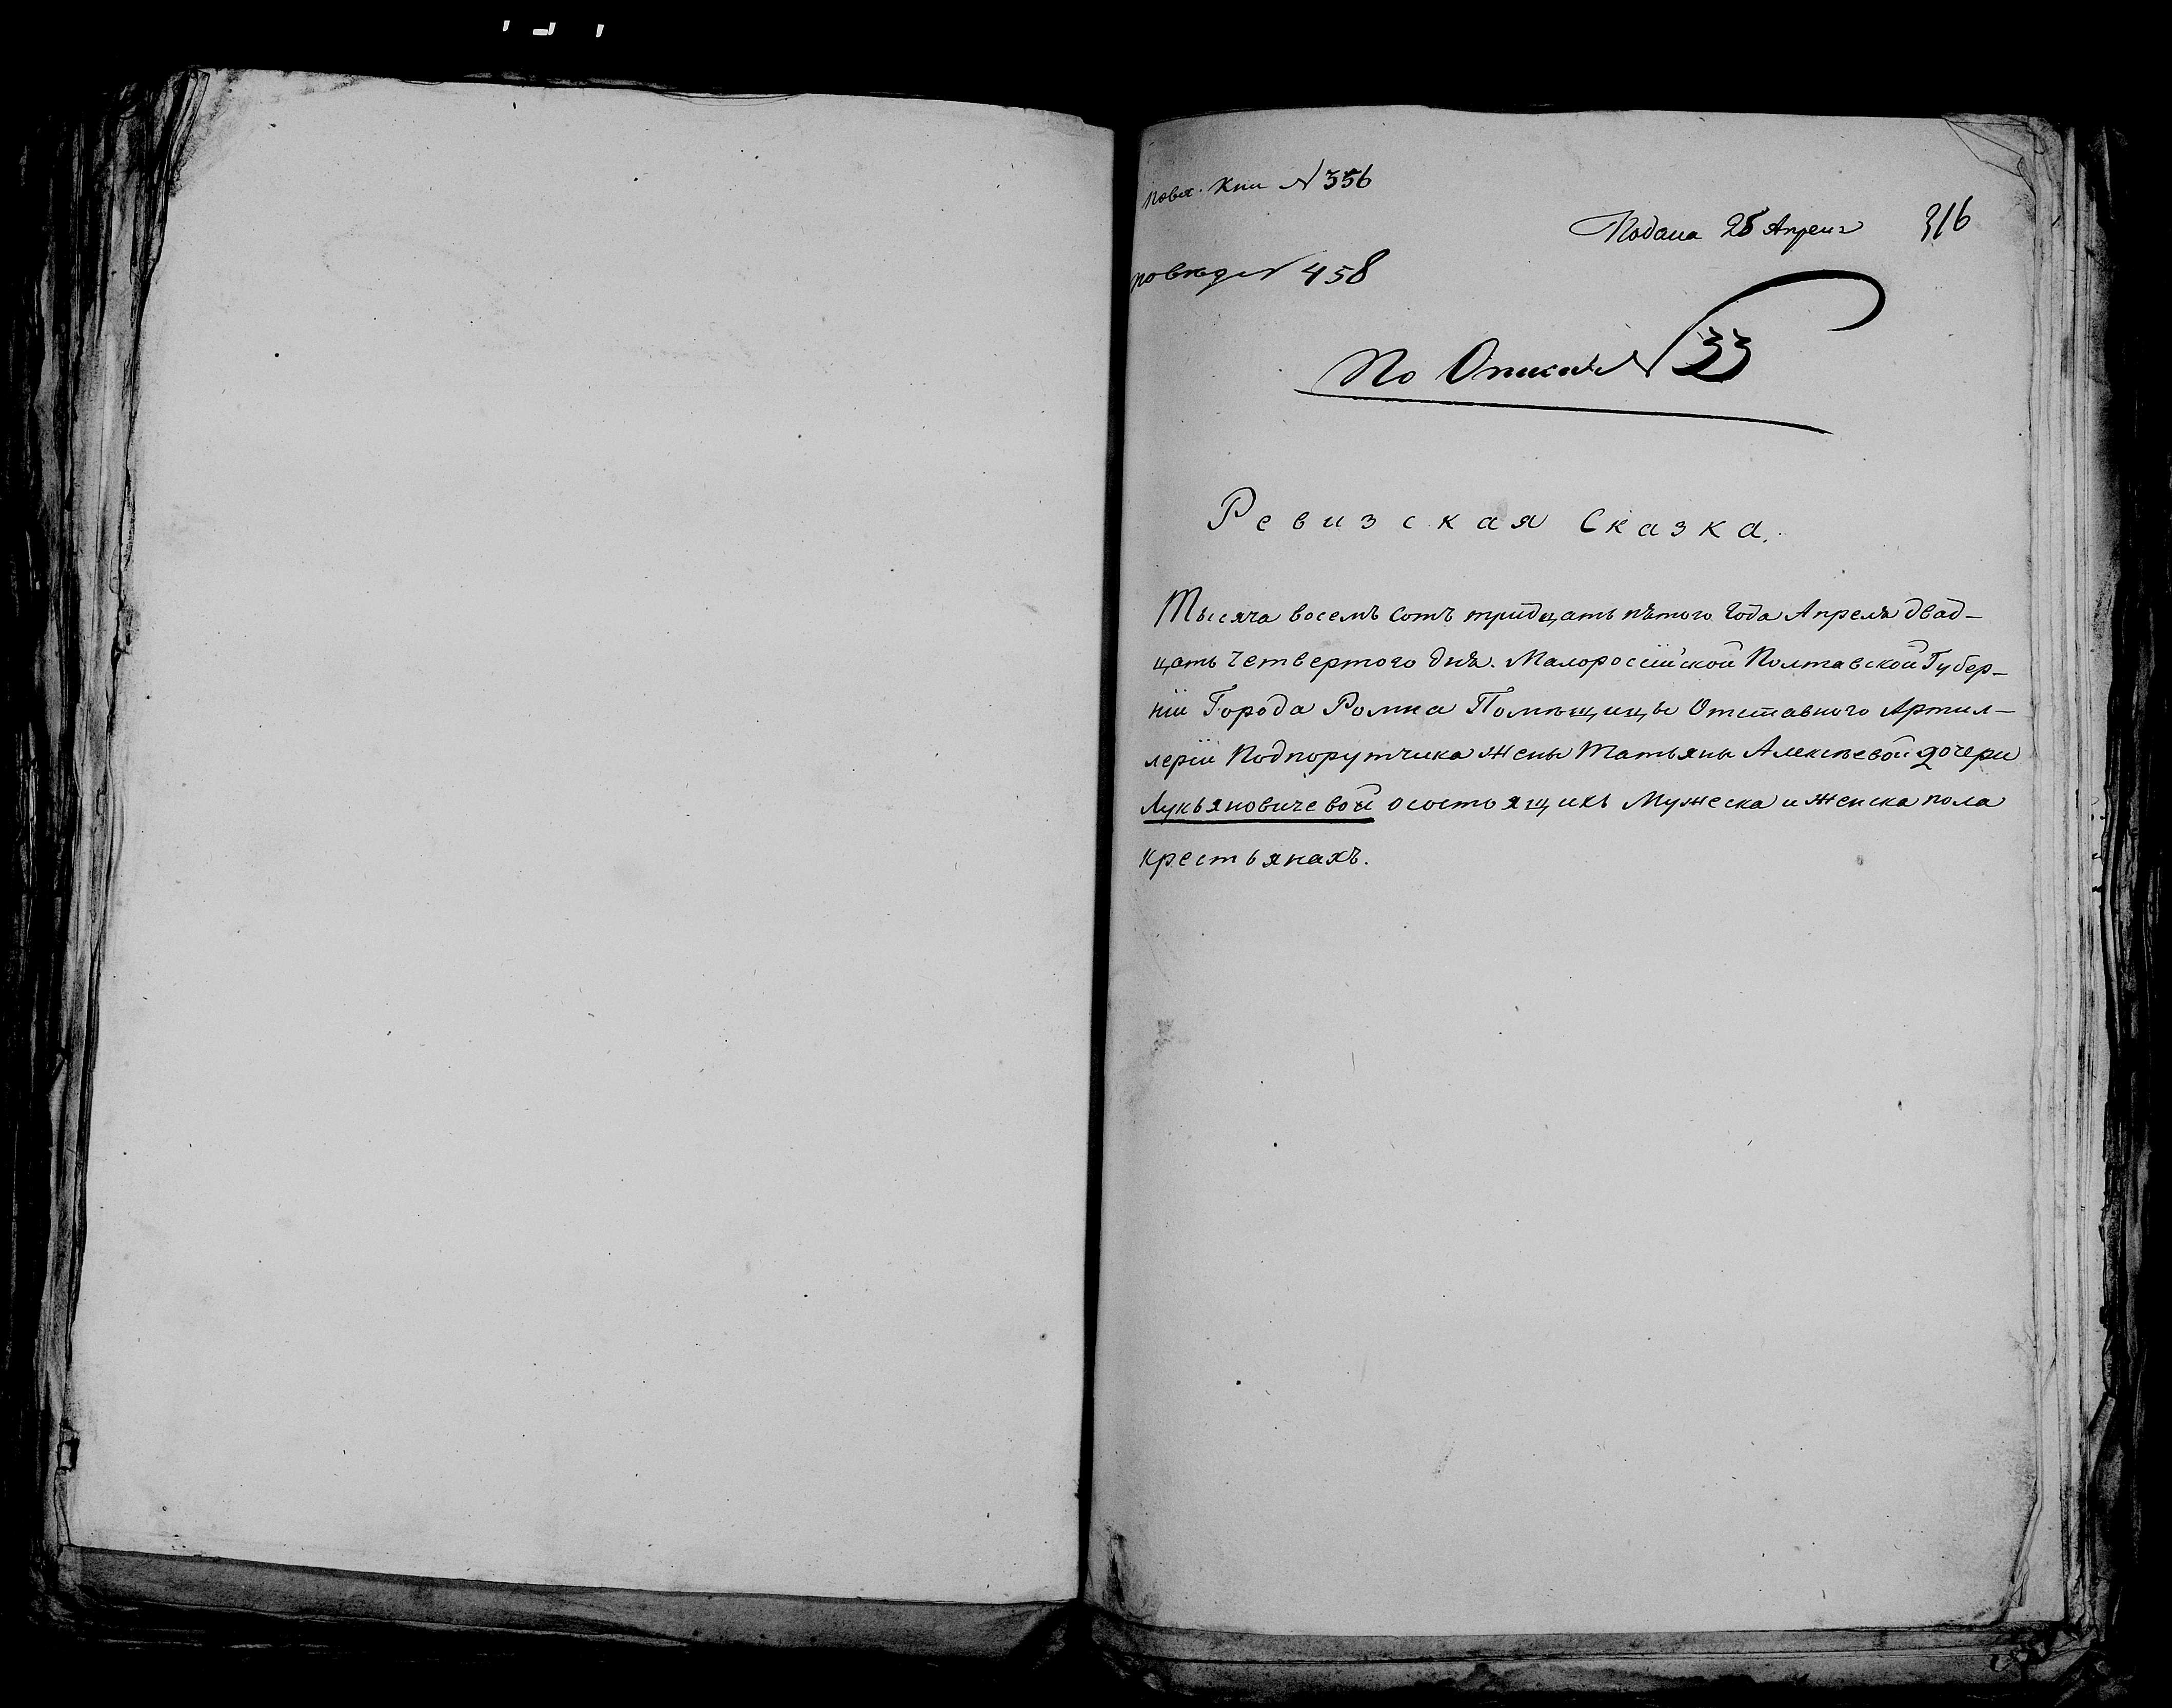 № 356
Подана 25 Апреля 316
№ 458
По Описи № 33
Ревизская Сказка.
Тысяча восемъ сотъ тридцать пятого Года Апреля двад-
цать Четвертого дня. Малоросiйской Полтавской Губер-
нiи Города Ромна Помѣщицы Отставного Артил-
лерiи Подпорутчика Жены Татьяны Алексѣевой дочери
Лукьяновичевой о состоящихъ Мужеска и Женска пола
крестьянахъ.